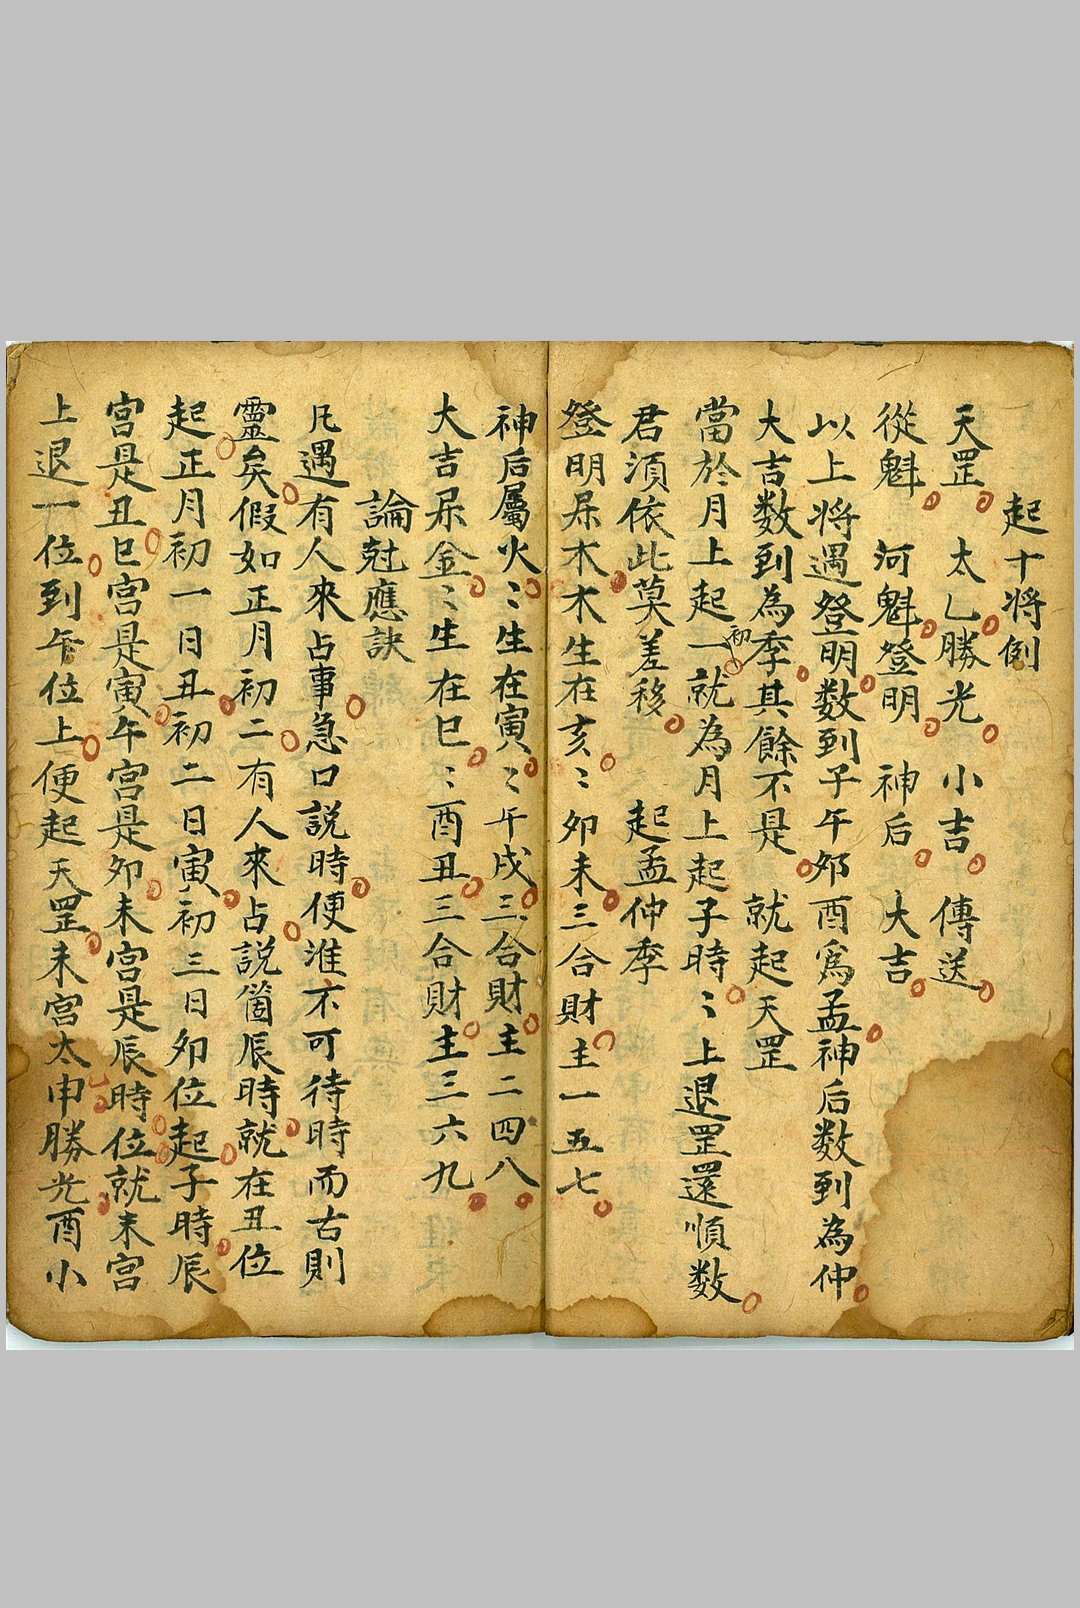 起十將例
天罡 太乙勝光 小吉 傳送
從魁 河魁登明 神后 大吉
以上將遇登明数到子午夘酉為孟神后数到為仲
大吉数到為季其餘不是 就起天罡
當於月上起一初就為月上起子時〻上退罡還順数
君須依此莫差移 起孟仲季
登明屌木木生在亥〻夘未三合財主一五七
神后屬火〻生在寅〻午戌三合財主二四八
大吉屌金〻生在巳〻酉丑三合財主三六九
論尅應訣
凡遇有人來占事急口説時便准不可待時而古則
靈矣假如正月初二有人來占說箇辰時就在丑位
起正月初一日丑初二日寅初三日夘位起子時辰
宮是丑巳宮是寅午宮是夘未宮是辰時位就未宮
上退一位到午位上便起天罡未宮太申勝光酉小